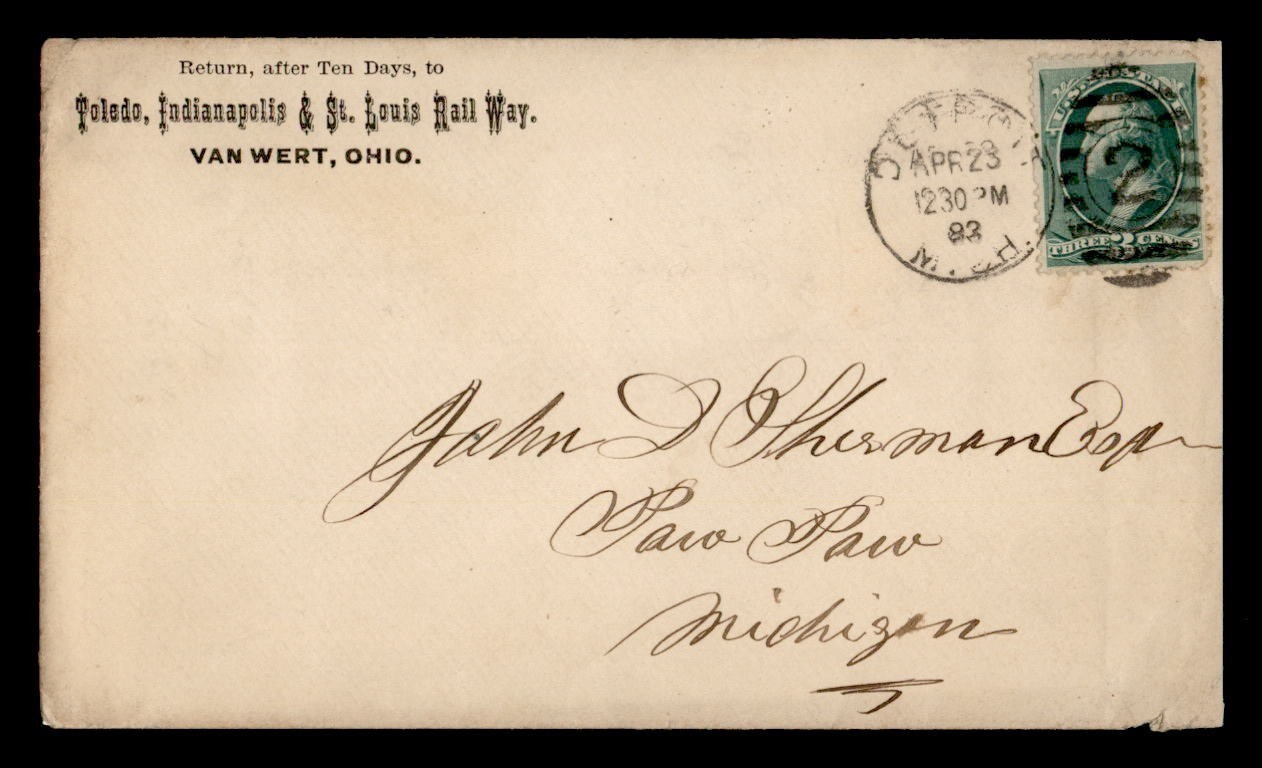 Return, after Ten Days, to
Toledo, Indianapolis & St. Louis Rail Way.
VAN WERT, OHIO.
DETROIT
APR 23
1230 PM
83
MICH.
U.S. POSTAGE
2
THREE 3 CENTS
John D Sherman Esq
Paw Paw
Michigan